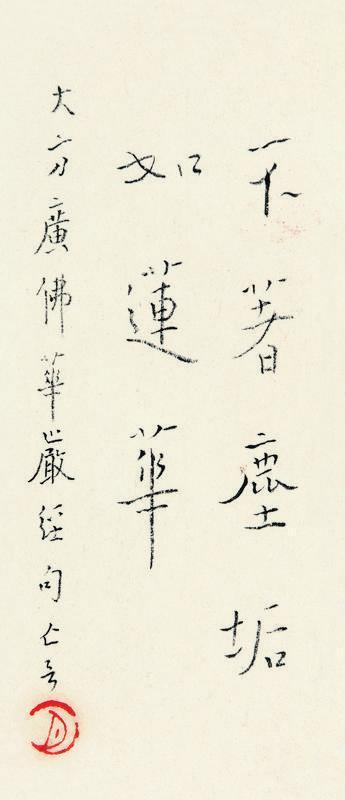 不著塵垢
如蓮華
大方廣佛華嚴經句亡言